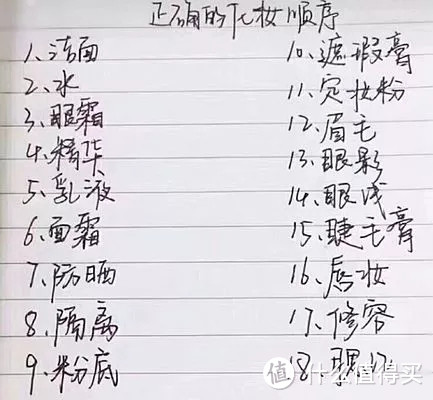 正确的化妆顺序
1、洁面
2、水
3、眼霜
4、精华
5、乳液
6、面霜
7、防晒
8、隔离
9、粉底
10、遮瑕膏
11、定妆粉
12、眉毛
13、眼影
14、眼线
15、睫毛膏
16、唇妆
17、修容
18、腮红
值 什么值得买